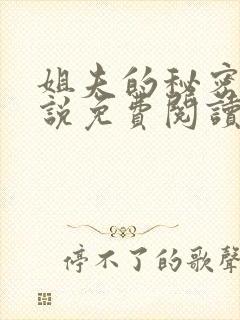 姐夫的秘密
説免費閱讀
停不了的歌聲